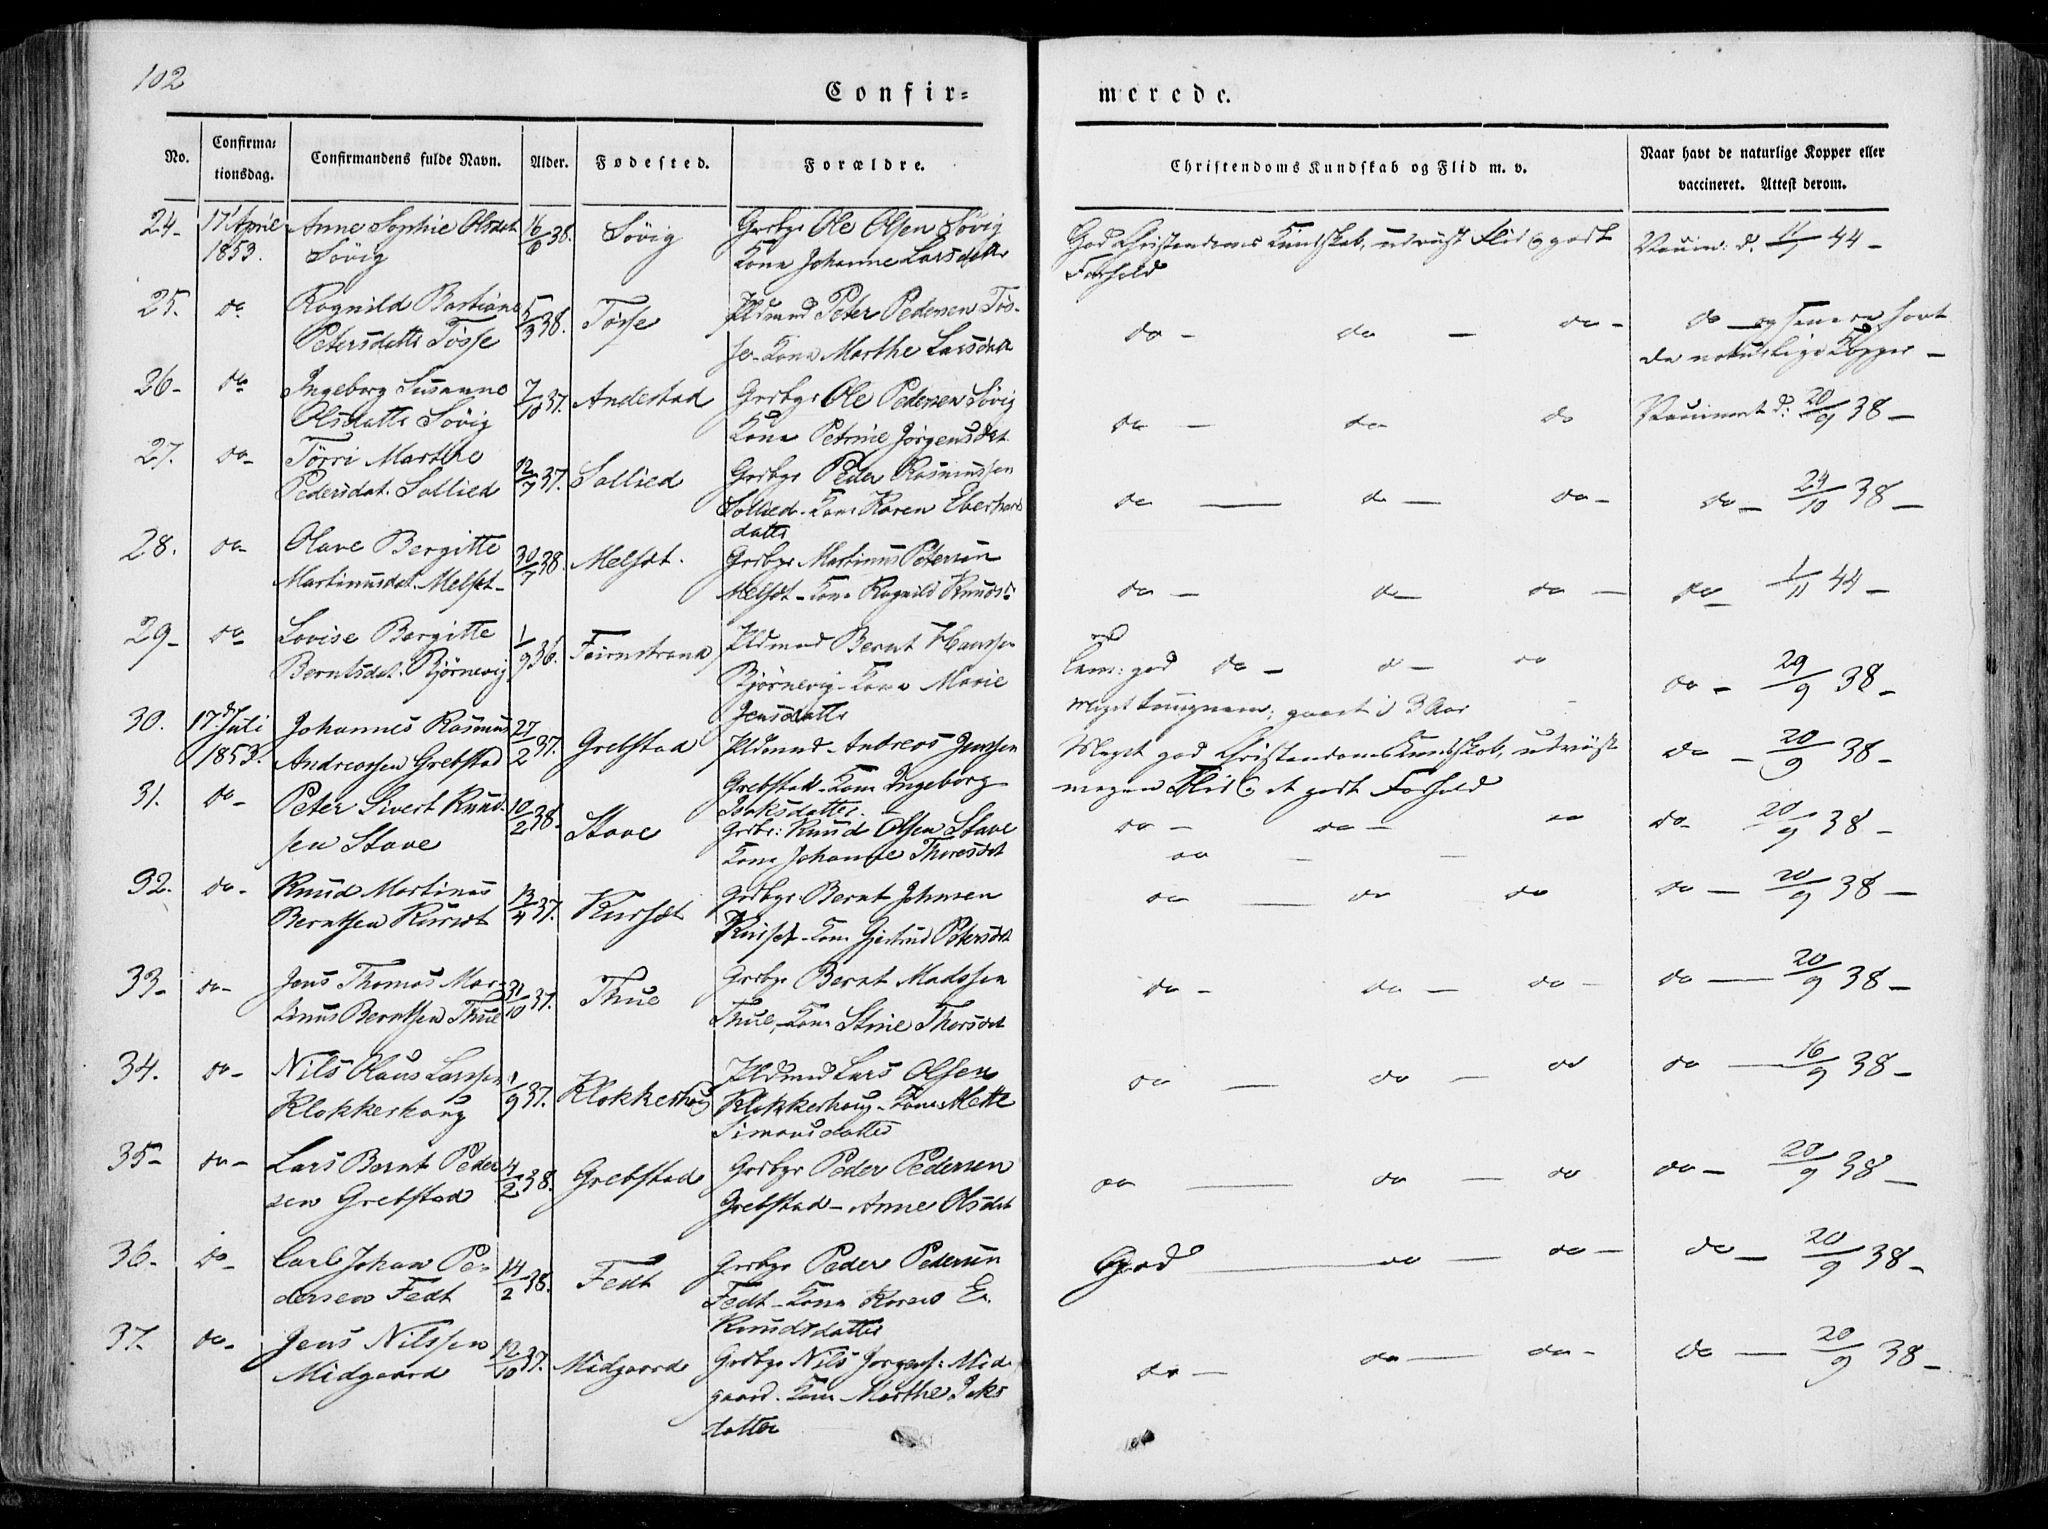 102
Confir-
merede.
No.
Confirma-
tionsdag.
Confirmandens fulde Navn.
Alder.
Fødested.
Forældre.
Christendoms Kundskab og Flid m. v.
Naar havt de naturlige Kopper eller
vaccineret. Attest derom.
24-
17 April
1853.
Anne Sophie Olsdat
Søvig
16/6 38.
Søvig
Grdbgr Ole Olsen Søvig
Kone Johanne Larsdatter
God Christendoms Kundskab, udviist Flid og godt
Forhold
Vaccin: d. 11/7 44-
25.
do
Ragnild Bastiane
Petersdatter Tøsse
5/3 38.
Tøsse
Peter Pedersen Tøs-
se-Kone Marthe Larsdatter
do - do - do -
do - og senere havt
de naturlige Kopper -
26-
do
Ingeborg Susanne
Olsdatter Søvig
7/10 37.
Andestad
Grdbgr Ole Pedersen Søvig
Kone Petrine Jørgensdat
do - do do
Vaccineret d: 20/9 38-
27.
do-
Tørri Marthe
Pedersdat. Sollied
12/7 37.
Sollied
Grdbgr Peder Rasmussen
Sollied-Kone Karen Eberhards
datter
do - do - do-
do - 24/10 38-
28.
do-
Olave Bergitte
Martinusdat. Melset-
30/7 38.
Melsæt.
Grdbgr Martinus Petersen
Melsæt-Kone Ragnild Knudsd:
do - do - do -
do - 1/11 44-
29-
do
Lovise Bergitte
Berntsdat. Bjørnevig
1/9 36.
Bernt Hanssen
Bjørnevig-Kone Marie
Jensdatter
god do - do - do
Meget tungnem; gaaet i 3 Aar
do - 29/9 38-
30.
17de Juli
1853.
Johannes Rasmus
Andreassen Grebstad
27/2 37.
Grebstad
Andreas Jenssen
Grebstad-Kone Ingeborg
Isaksdatter.
Meget god Christendoms Kundskab, udviist
megen Flid og et godt Forhold
do - 20/9 38-
31.
do-
Peter Sivert Knud-
sen Stave
10/2 38.
Stave
Grdbr: Knud Olsen Stave
Kone Johanne Thoresdat
do - do - do
do - -
do- 20/9 38-
32.
do-
Knud Martinus
Berntsen Kurset
13/4 37.
Kursæt
Grdbgr Bernt Johnsen
Kurset-Kone Gjertrud Petersdat
do - do do
do - 20/9 38-
33-
do-
Jens Thomas Mar-
tinus Berntsen Thue
31/10 37.
Thue
Grdbgr Bernt Madssen
Thue,-Kone Stine Thorsdat
do - do - do -
do - 20/9 38-
34.
do-
Nils Olaus Larssen
Klokkerhoug
1/9 37.
Klokkerhoug
Lars Olsen
Klokkerhoug-Kone Mette
Simonsdatter
do - do - do
do - 16/9 38-
35-
do-
Lars Bernt Peder
sen Grebstad
4/2 38.
Grebstad
Grdbgr Peder Pedersen
Grebstad-Anne Olsdat
do - do - do
do - 20/9 38-
36-
do-
Carl Johan Pe-
dersen Fedt
14/2 38.
Fedt
Grdbgr Peder Pedersen
Fedt-Kone Karen E.
Knudsdatter
God - do - do -
do - 20/9 38-
37-
do-
Jens Nilssen
Midgaard
12/10 37.
Midgaard
Grdbgr Nils Jørgens: Mid-
gaard. Kone Marthe Isaks
datter
do - do - do -
do - 20/9 38-